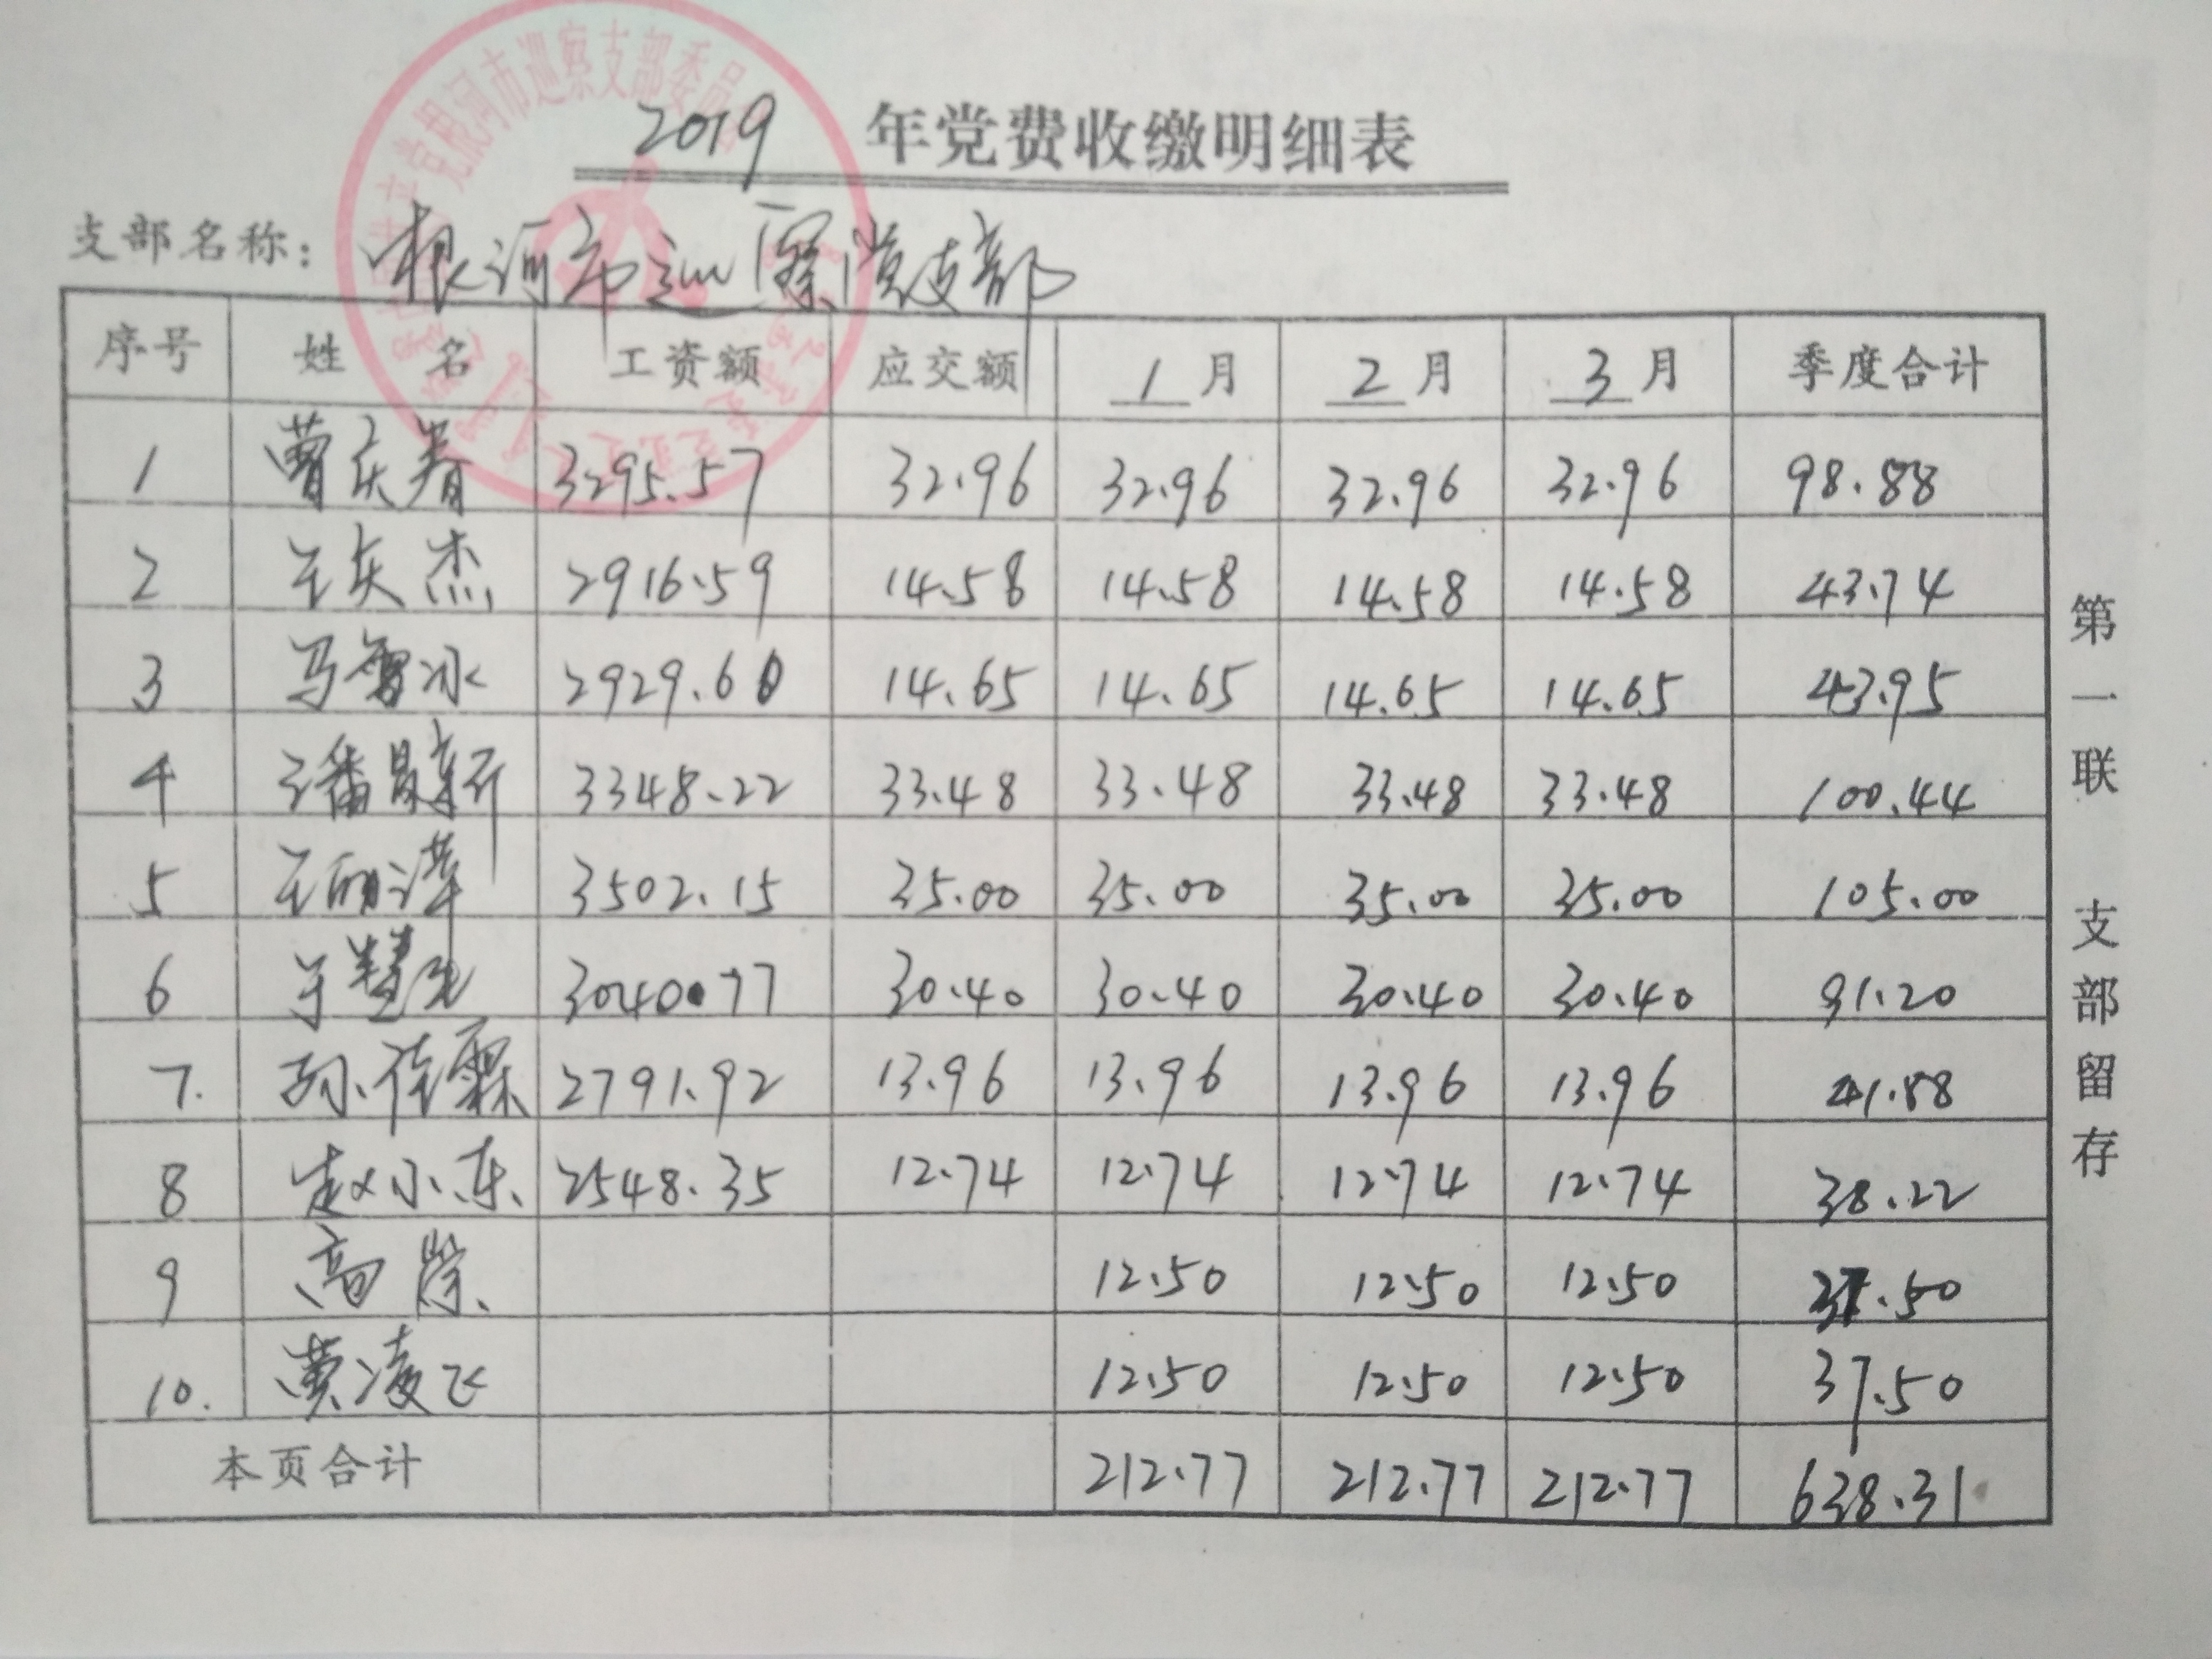 2019 年党费收缴明细表
支部名称: 根河市巡察党支部
序号 姓 名 工资额 应交额 1 月 2 月 3 月 季度合计
1 曹庆春 3295.57 32.96 32.96 32.96 32.96 98.88
2 王庆杰 2916.59 14.58 14.58 14.58 14.58 43.74
3 马雪冰 2929.60 14.65 14.65 14.65 14.65 43.95
4 3348.22 33.48 33.48 33.48 33.48 100.44
5 3502.15 35.00 35.00 35.00 35.00 105.00
6 3040.77 30.40 30.40 30.40 30.40 91.20
7. 孙佳霖 2791.92 13.96 13.96 13.96 13.96 41.88
8 赵小东 2548.35 12.74 12.74 12.74 12.74 38.22
9 12.50 12.50 12.50 37.50
10. 黄凌飞 12.50 12.50 12.50 37.50
本页合计 212.77 212.77 212.77 638.31
第一联 支部留存